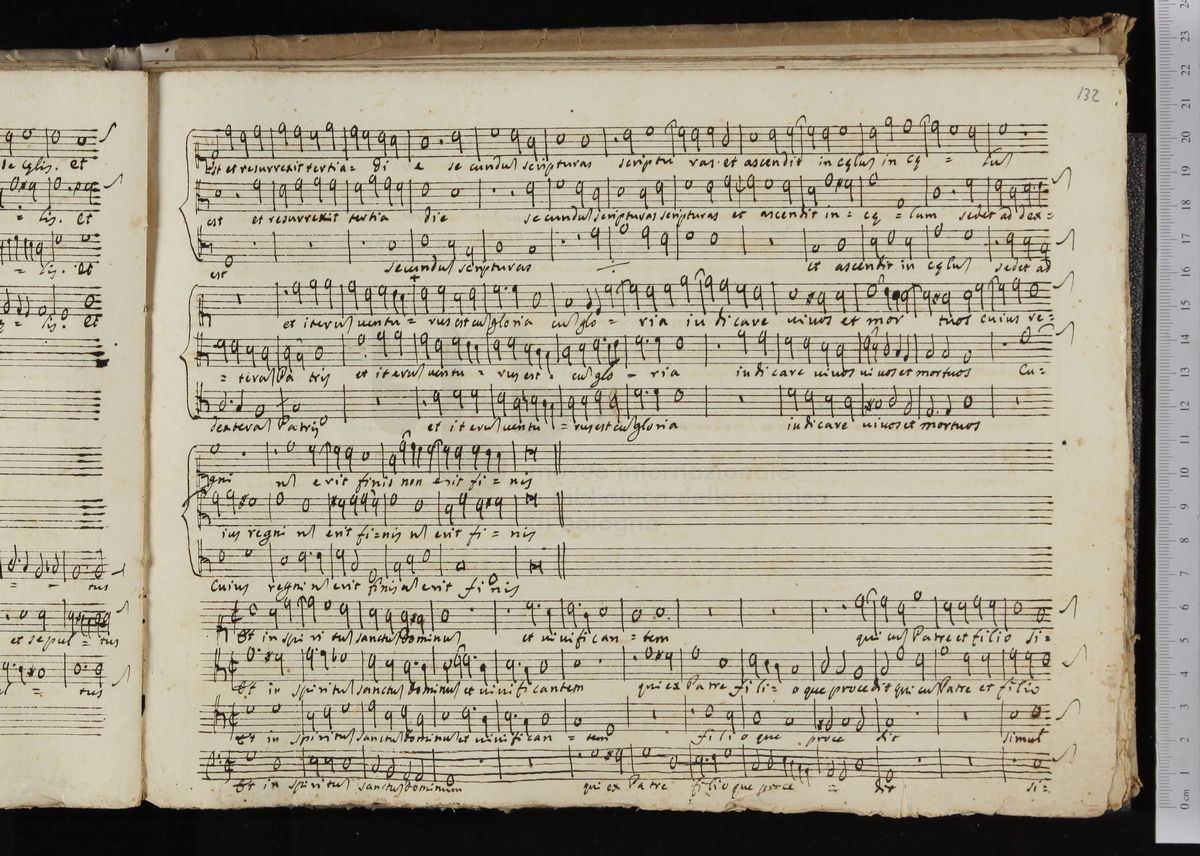 132
est et resurrexit tertia = di e secundus scripturas scriptu ras et ascendit in cęlus in cę = lus
est et resurrexit tertia die secundus scripturas scripturas et ascendit in = cę = lum sedet ad dex =
est secundus scripturas et ascendit in cęlus sedet ad
et iterus ventu = rus est cus gloria cus glo = ria iu dicare vivos et mor tuos cuius re =
= teras Pa tris et iterus ventu = rus est = cus glo = ria iudicare vivos vivos et mortuos Cu =
dexteras Patris et iterus ventu = rus est cus gloria iudicare vivos et mortuos
gni erit finis non erit fi = nis
ius regni erit fi = nis erit fi = nis
Cuius regni erit finis erit finis
Et in spi ri tus sanctus Dominus et vivifican = tem qui cus Patre et filio si =
Et in spiritus sanctus Dominus et vivificantem qui ex Patre fili = o que procedit qui cus Patre et filio
Et in spiritus sanctus Dominus et vivifican = tem filio que proce dit simul
Et in spiritus sanctus Dominum qui ex Patre filio que proce = dit si =
lis. et
= lis. et
= lis. et
= lis. et
= = tus
et sepul = tus
= tus
0 cm 1 2 3 4 5 6 7 8 9 10 11 12 13 14 15 16 17 18 19 20 21 22 23 24